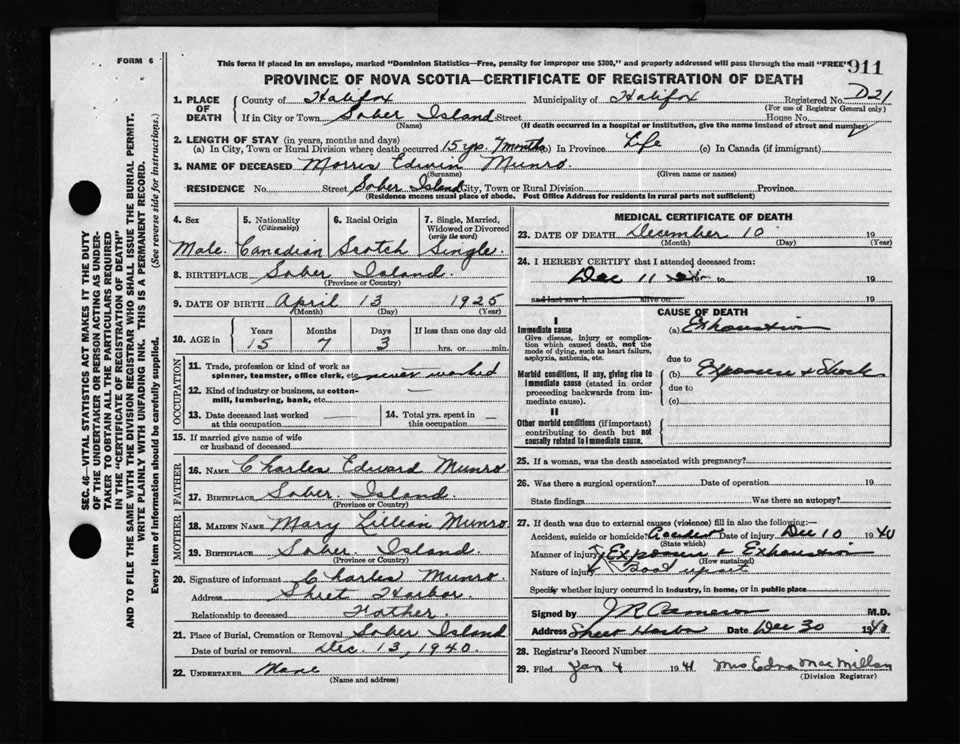 FORM 6
This form if placed in an envelope, marked "Dominion Statistics—Free, penalty for improper use $300," and properly addressed will pass through the mail "FREE"
911
PROVINCE OF NOVA SCOTIA—CERTIFICATE OF REGISTRATION OF DEATH
SEC. 46—VITAL STATISTICS ACT MAKES IT THE DUTY
OF THE UNDERTAKER OR PERSON ACTING AS UNDER-
TAKER TO OBTAIN ALL THE PARTICULARS REQUIRED
IN THE "CERTIFICATE OF REGISTRATION OF DEATH"
AND TO FILE THE SAME WITH THE DIVISION REGISTRAR WHO SHALL ISSUE THE BURIAL PERMIT.
WRITE PLAINLY WITH UNFADING INK. THIS IS A PERMANENT RECORD.
Every item of Information should be carefully supplied. (See reverse side for instructions.)
1. PLACE OF DEATH County of Halifax Municipality of Halifax Registered No. D21
(For use of Registrar General only)
If in City or Town Sober Island Street House No.
(Name) (If death occurred in a hospital or institution, give the name instead of street and number)
2. LENGTH OF STAY (in years, months and days)
(a) In City, Town or Rural Division where death occurred 15 yrs. 7 months (b) In Province Life (c) In Canada (if immigrant)
3. NAME OF DECEASED Morris Edwin Munro.
(Surname) (Given name or names)
RESIDENCE No. Street Sober Island City, Town or Rural Division Province
(Residence means usual place of abode. Post Office Address for residents in rural parts not sufficient)
4. Sex Male
5. Nationality (Citizenship) Canadian
6. Racial Origin Scotch
7. Single, Married, Widowed or Divorced (write the word) Single.
8. BIRTHPLACE Sober Island.
(Province or Country)
9. DATE OF BIRTH April 13 1925
(Month) (Day) (Year)
10. AGE in Years 15 Months 7 Days 3 If less than one day old hrs. or min.
OCCUPATION
11. Trade, profession or kind of work as
spinner, teamster, office clerk, etc. never worked
12. Kind of industry or business, as cotton-
mill, lumbering, bank, etc. —
13. Date deceased last worked at this occupation —
14. Total yrs. spent in this occupation —
15. If married give name of wife
or husband of deceased
FATHER
16. NAME Charles Edward Munro.
17. BIRTHPLACE Sober Island.
(Province or Country)
MOTHER
18. MAIDEN NAME Mary Lillian Munro
19. BIRTHPLACE Sober Island.
(Province or Country)
20. Signature of informant Charles Munro.
Address Sheet Harbor.
Relationship to deceased Father.
21. Place of Burial, Cremation or Removal Sober Island
Date of burial or removal Dec. 13, 1940.
22. UNDERTAKER None
(Name and address)
MEDICAL CERTIFICATE OF DEATH
23. DATE OF DEATH December 10 19
(Month) (Day) (Year)
24. I HEREBY CERTIFY that I attended deceased from:
Dec 11 to 19
and last saw h alive on 19
CAUSE OF DEATH
I
Immediate cause (a) Exhaustion
Give disease, injury or complica-
tion which caused death, not the
mode of dying, such as heart failure,
asphyxia, asthenia, etc.
due to
Morbid conditions, if any, giving rise to
immediate cause (stated in order
proceeding backwards from im-
mediate cause).
(b) Exposure & Shock
due to
(c)
II
Other morbid conditions (if important)
contributing to death but not
causally related to immediate cause.
25. If a woman, was the death associated with pregnancy?
26. Was there a surgical operation? Date of operation 19
State findings Was there an autopsy?
27. If death was due to external causes (violence) fill in also the following:—
Accident, suicide or homicide? Accident Date of injury Dec 10 1940
(State which)
Manner of injury Exposure & Exhaustion
(How sustained)
Nature of injury Boat upset
Specify whether injury occurred in industry, in home, or in public place
Signed by J R Cameron M.D.
Address Sheet Harbor Date Dec 30 1940
28. Registrar's Record Number
29. Filed Jan 4 1941 Mrs Edna MacMillan
(Division Registrar)